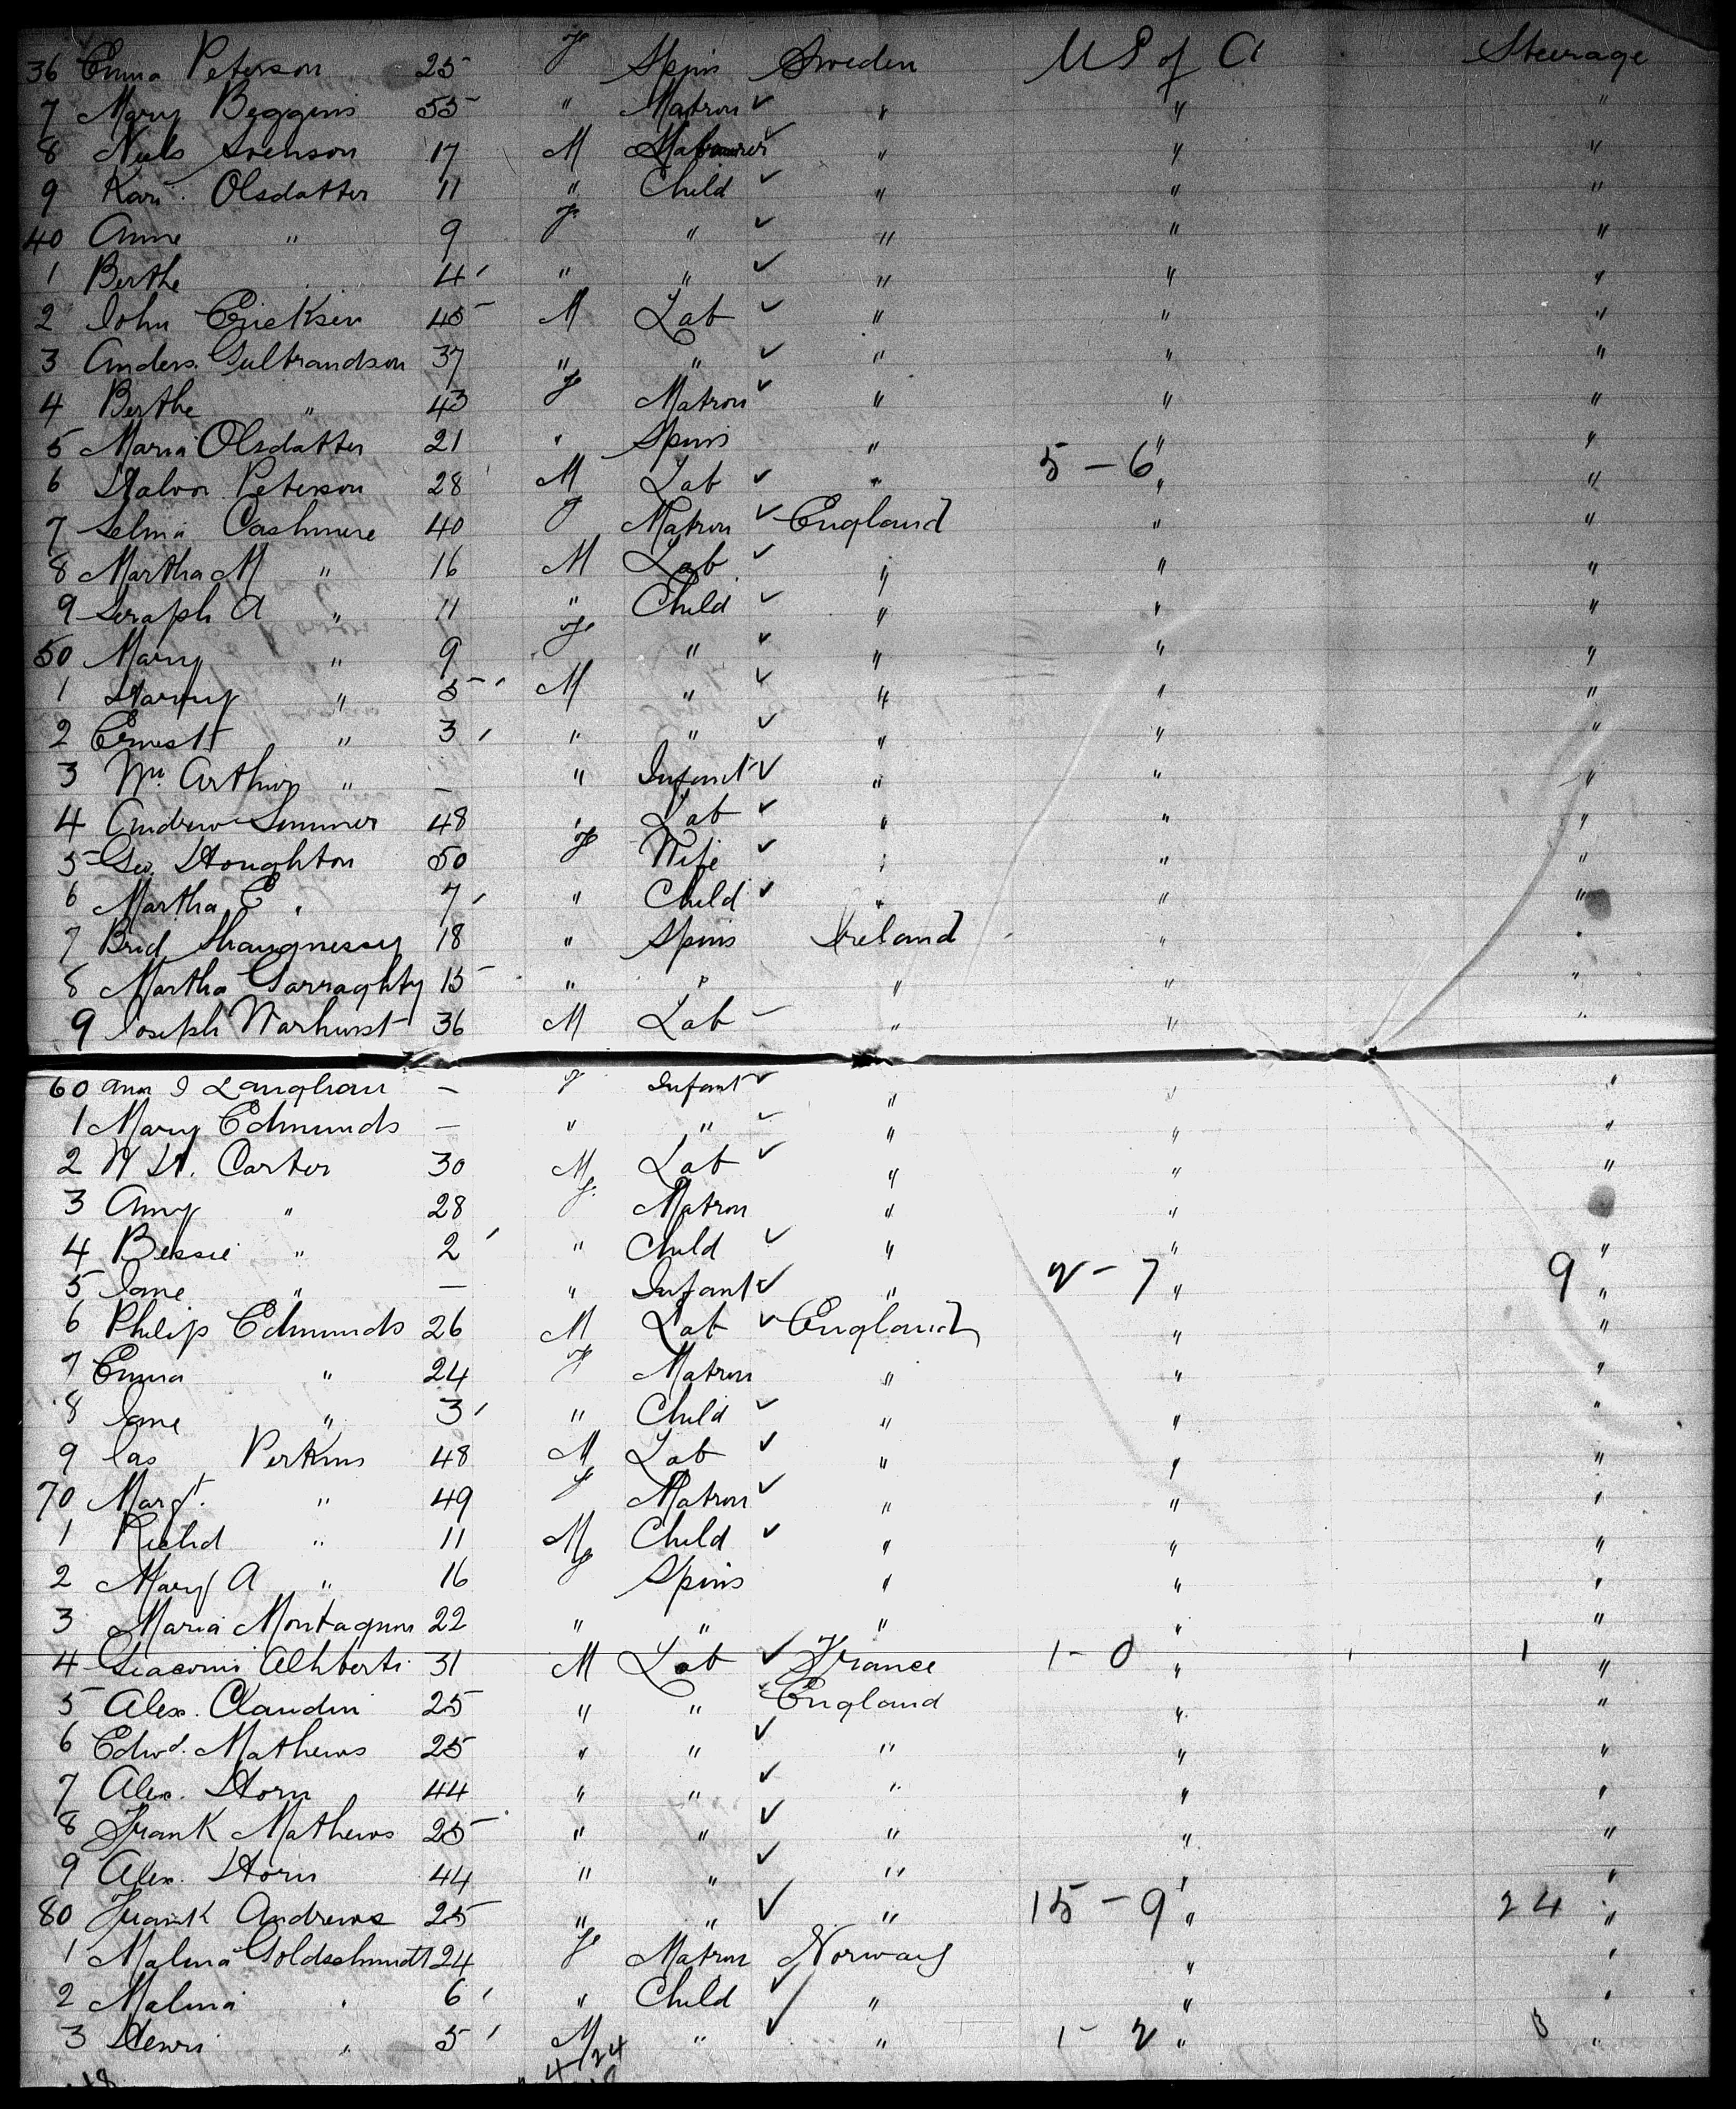 36 Emma Peterson 25 F Spins Sweden US of A Steerage
7 Mary Beggins 55 " Matron ✓ " " "
8 Nels Svenson 17 M Labourer ✓ " " "
9 Kari Olsdatter 11 " Child ✓ " " "
40 Anne " 9 F " ✓ " " "
1 Berthe 4 " " ✓ " " "
2 John Ericksen 45 M Lab ✓ " " "
3 Anders Gulbrandson 37 " " ✓ " " "
4 Berthe " 43 F Matron ✓ " " "
5 Maria Olsdatter 21 " Spins " " "
6 Halvor Peterson 28 M Lab ✓ " 5-6 " "
7 Selma Cashmere 40 F Matron ✓ England " "
8 Martha M " 16 M Lab ✓ " " "
9 Seraph A " 11 " Child ✓ " " "
50 Mary " 9 F " ✓ " " "
1 Harry " 5 M " ✓ " " "
2 Ernest " 3 " " ✓ " " "
3 Wm. Arthur " – " Infant ✓ " " "
4 Andrew Simmer 48 " Lab ✓ " " "
5 Geo. Houghton 50 F Wife ✓ " " "
6 Martha E " 7 " Child ✓ " " "
7 Brid Shaugnessy 18 " Spins Ireland " "
8 Martha Garraghty 15 " " " " "
9 Joseph Warhurst 36 M Lab – " " "
60 Ann J Langhan – F Infant ✓ " " "
1 Mary Edmunds – " " ✓ " " "
2 W H. Carter 30 M Lab ✓ " " "
3 Amy " 28 F Matron " " "
4 Bessie " 2 " Child ✓ " " "
5 Jane " – " Infant ✓ " 2-7 " 9 "
6 Philip Edmunds 26 M Lab ✓ England " "
7 Emma " 24 F Matron " " "
8 Jane " 3 " Child ✓ " " "
9 Jas Perkins 48 M Lab ✓ " " "
70 Margt. " 49 F Matron ✓ " " "
1 Richd " 11 M Child ✓ " " "
2 Mary A " 16 F Spins " " "
3 Maria Montagnu 22 " " " " "
4 Giacomi Alhberti 31 M Lab ✓ France 1-0 " 1 "
5 Alex. Claudin 25 " " ✓ England " "
6 Edwd. Mathews 25 " " ✓ " " "
7 Alex. Horn 44 " " ✓ " " "
8 Frank Mathews 25 " " ✓ " " "
9 Alex. Horn 44 " " ✓ " " "
80 Frank Andrews 25 " " ✓ " 15-9 " 24 "
1 Malma Goldschmidt 24 F Matron Norway " "
2 Malma " 6 " Child ✓ " " "
3 Henri " 5 M " ✓ " 1-2 " 3 "
4/24